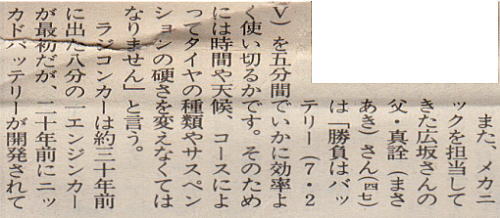 また、メカニ
ックを担当して
きた広坂さんの
父・真詮（まさ
あき）さん（四七）
は「勝負はバッ
テリー（７・２
Ｖ）を五分間でいかに効率よ
く使い切るかです。そのため
には時間や天候、コースによ
ってタイヤの種類やサスペン
ションの硬さを変えなくては
なりません」と言う。
ラジコンカーは約三十年前
に出た八分の一エンジンカー
が最初だが、二十年前にニッ
カドバッテリーが開発されて